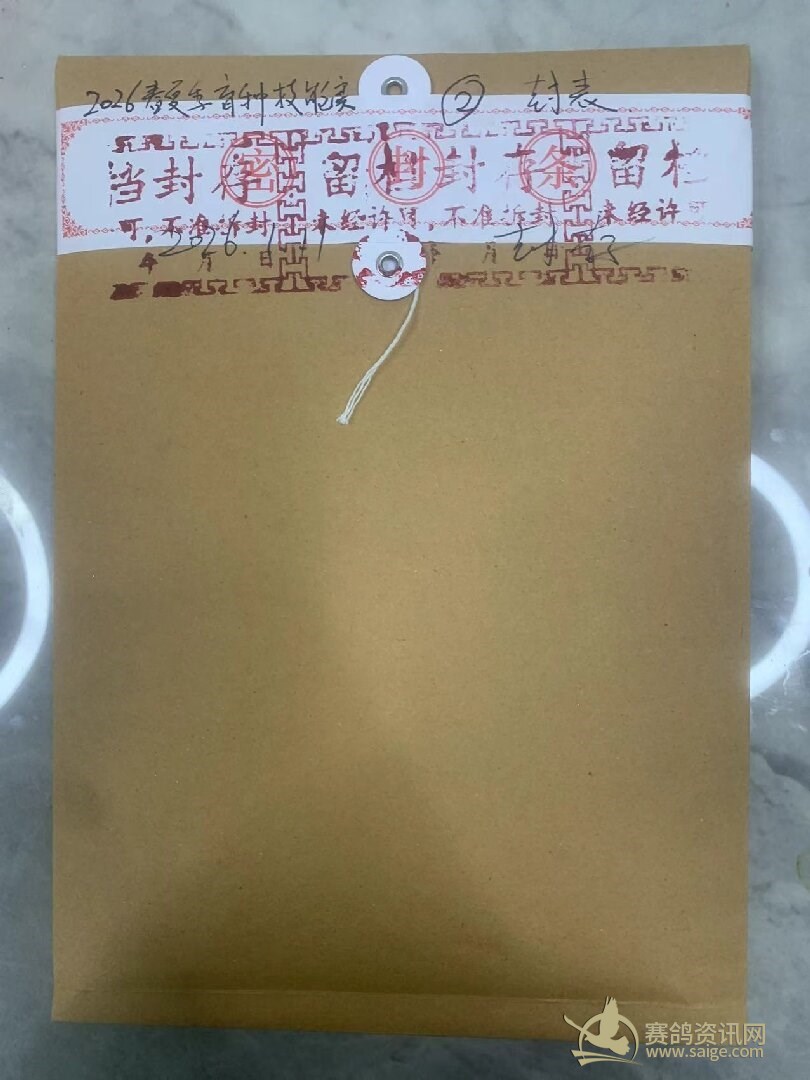 2026春夏季育种技能赛 ② 封表
密 封 条
当封存 留档封存 留档
可,不准拆封 未经许可,不准拆封 未经许可
2026.1.
年 月 日 年 月
赛鸽资讯网
www.saige.com